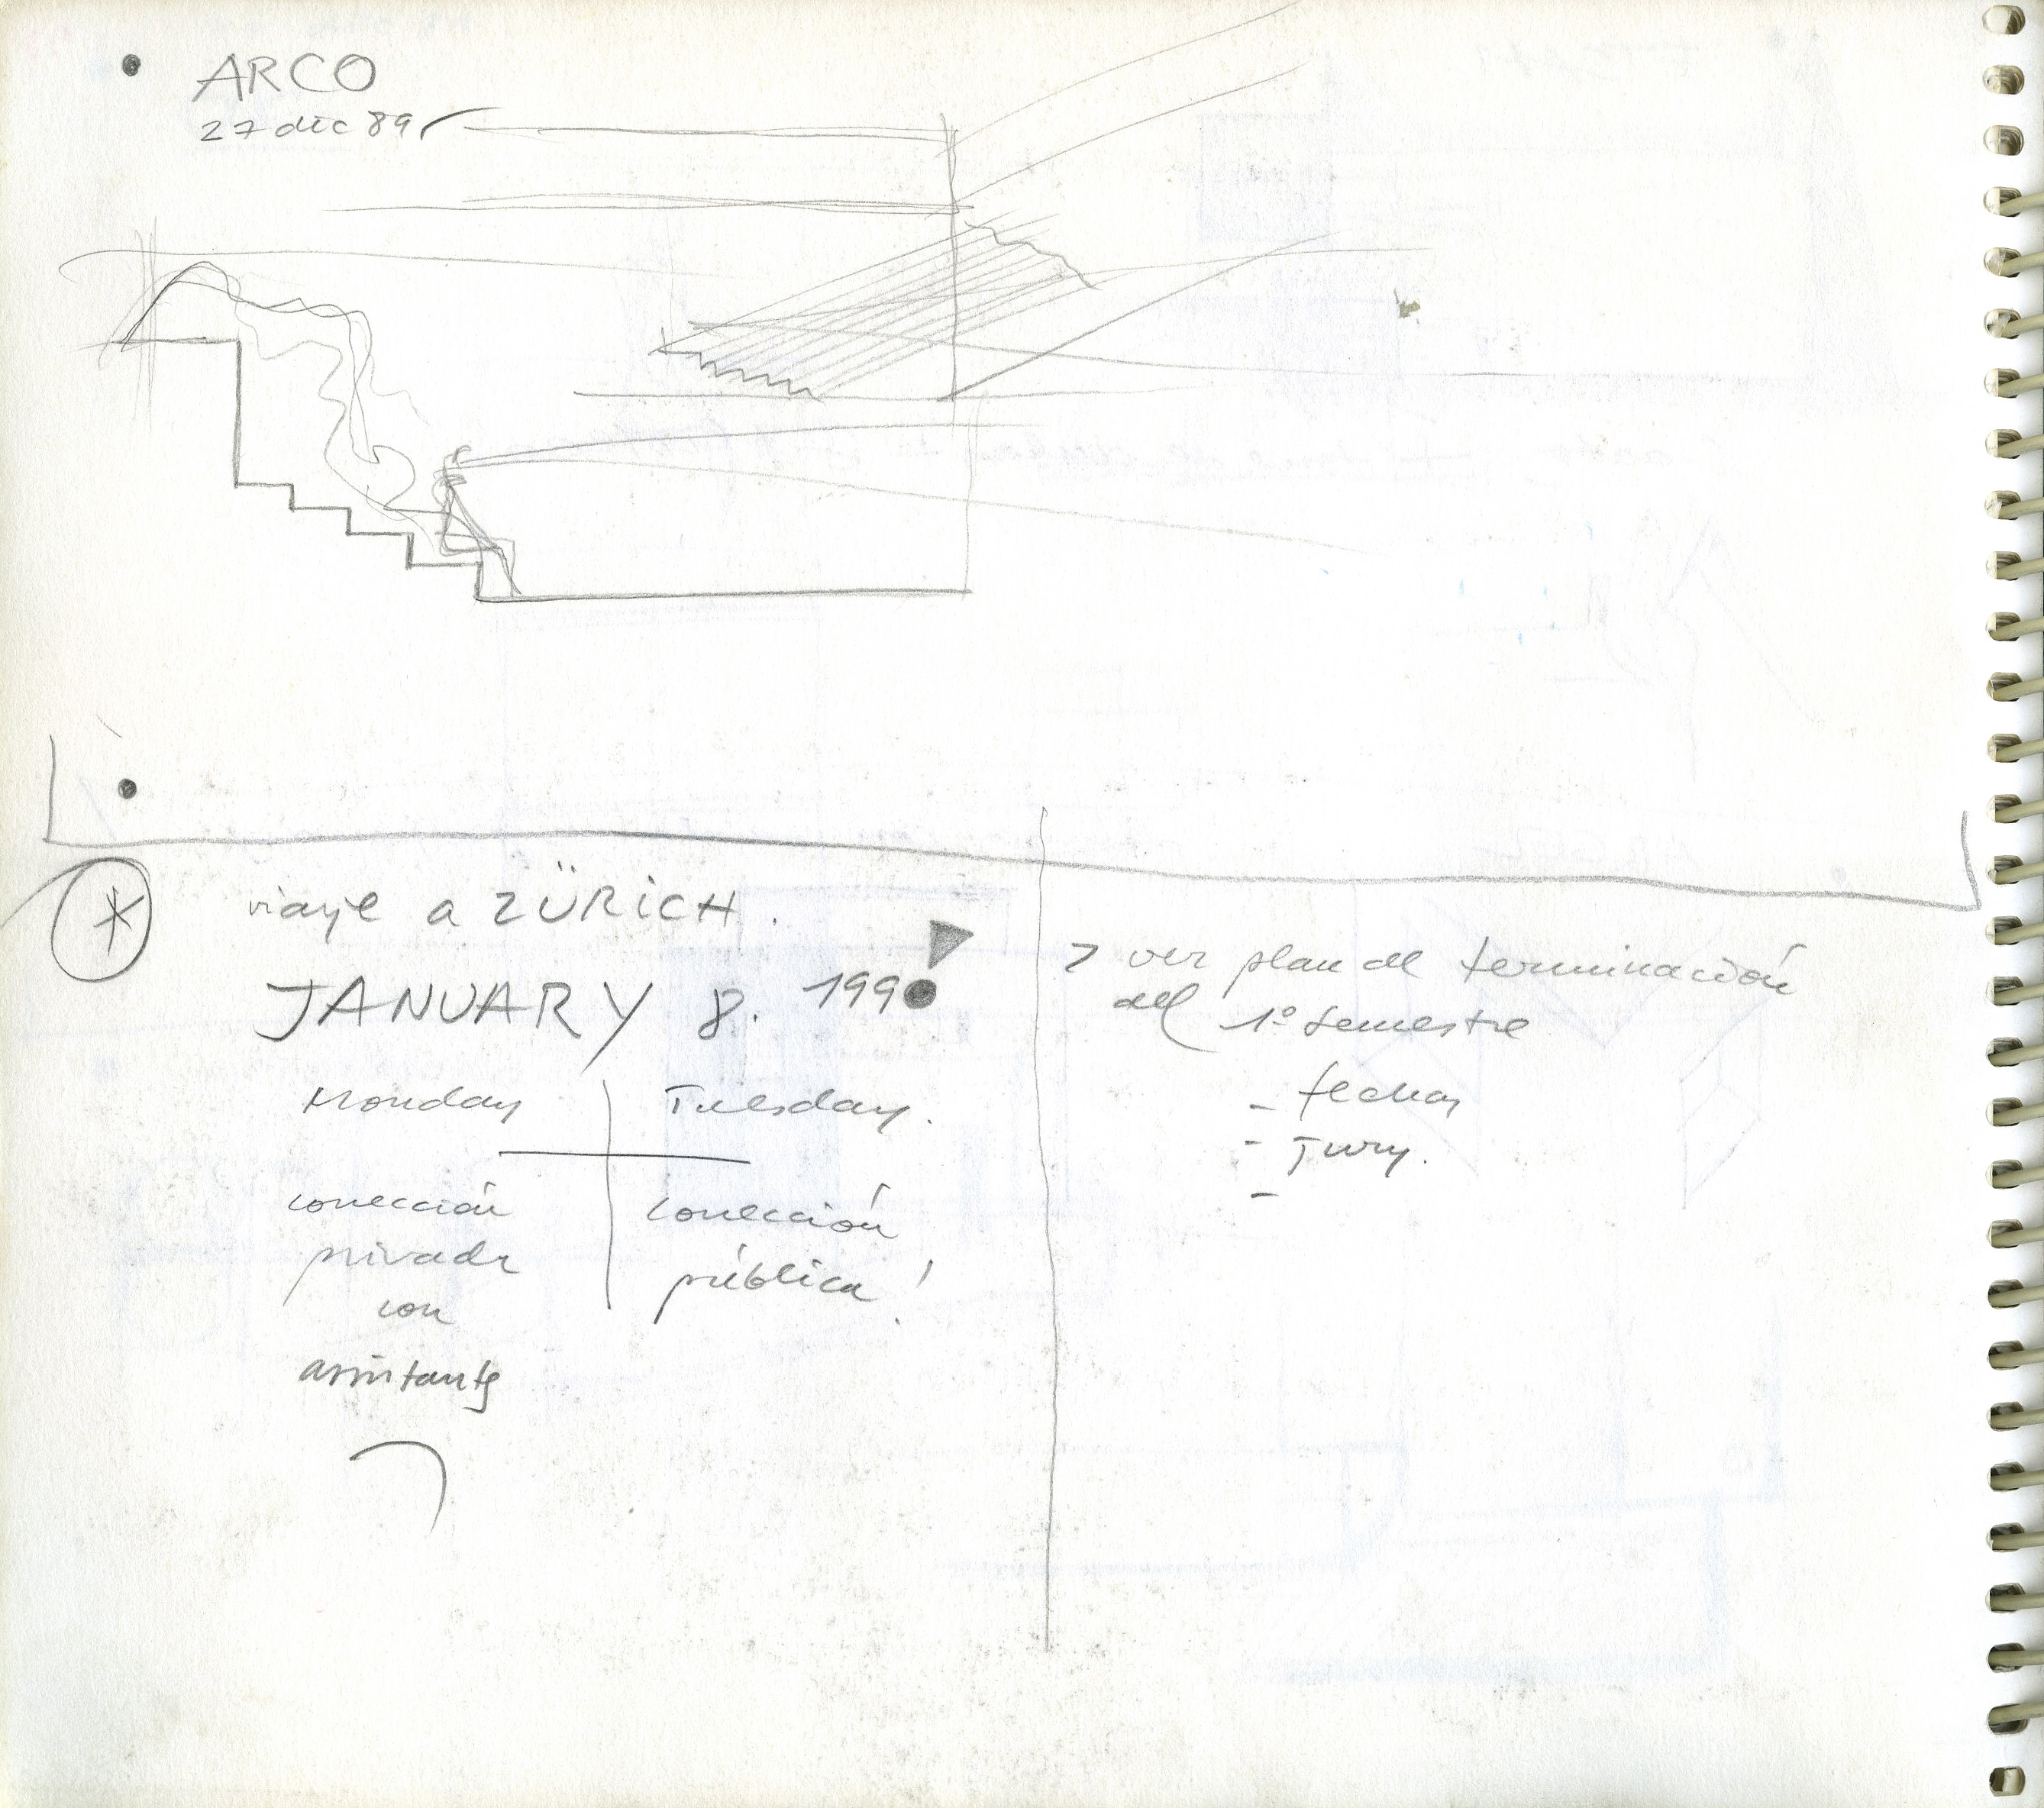 ARCO
27 dic 89
viaje a ZÜRiCH.
JANUARY 8. 1990
Monday
Tuesday.
corrección
privada
con
corrección
pública!
> ver plan de terminación
del 1º semestre
- fechas
- Jury.
-